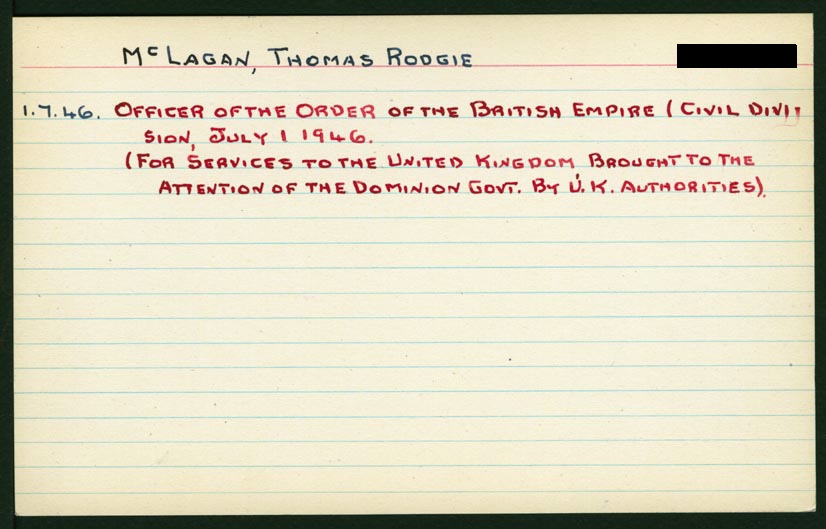 McLAGAN, THOMAS RODGIE
1.7.46. OFFICER OF THE ORDER OF THE BRITISH EMPIRE (CIVIL DIVI-
SION, JULY 1 1946.
(FOR SERVICES TO THE UNITED KINGDOM BROUGHT TO THE
ATTENTION OF THE DOMINION GOVT. BY U.K. AUTHORITIES).